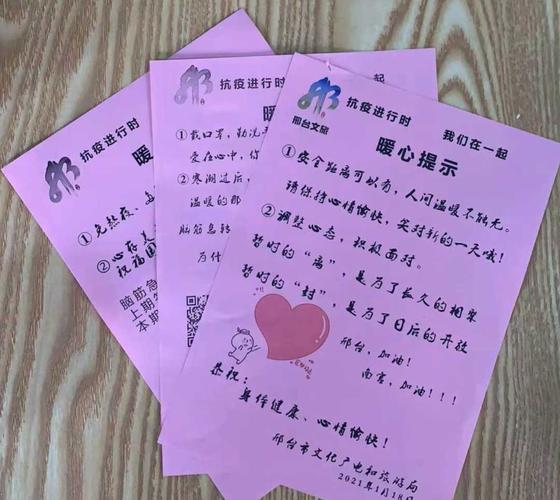 抗疫进行时
暖
①免熬夜、
②心存美
祝福国
脑筋急
上期答
本期
抗疫进行时 起
暖
①戴口罩,勤洗手
爱在心中,你
②寒潮过后,
温暖的那
脑筋急转
为什
邢台文旅
抗疫进行时 我们在一起
暖心提示
①安全距离可以有,人间温暖不能无。
请保持心情愉快,笑对新的一天哦!
②调整心态,积极面对。
暂时的“离”,是为了长久的相聚
暂时的“封”,是为了日后的开放
邢台,加油!
南宫,加油!!!
恭祝:
身体健康、心情愉快!
邢台市文化广电和旅游局
2021年1月18日